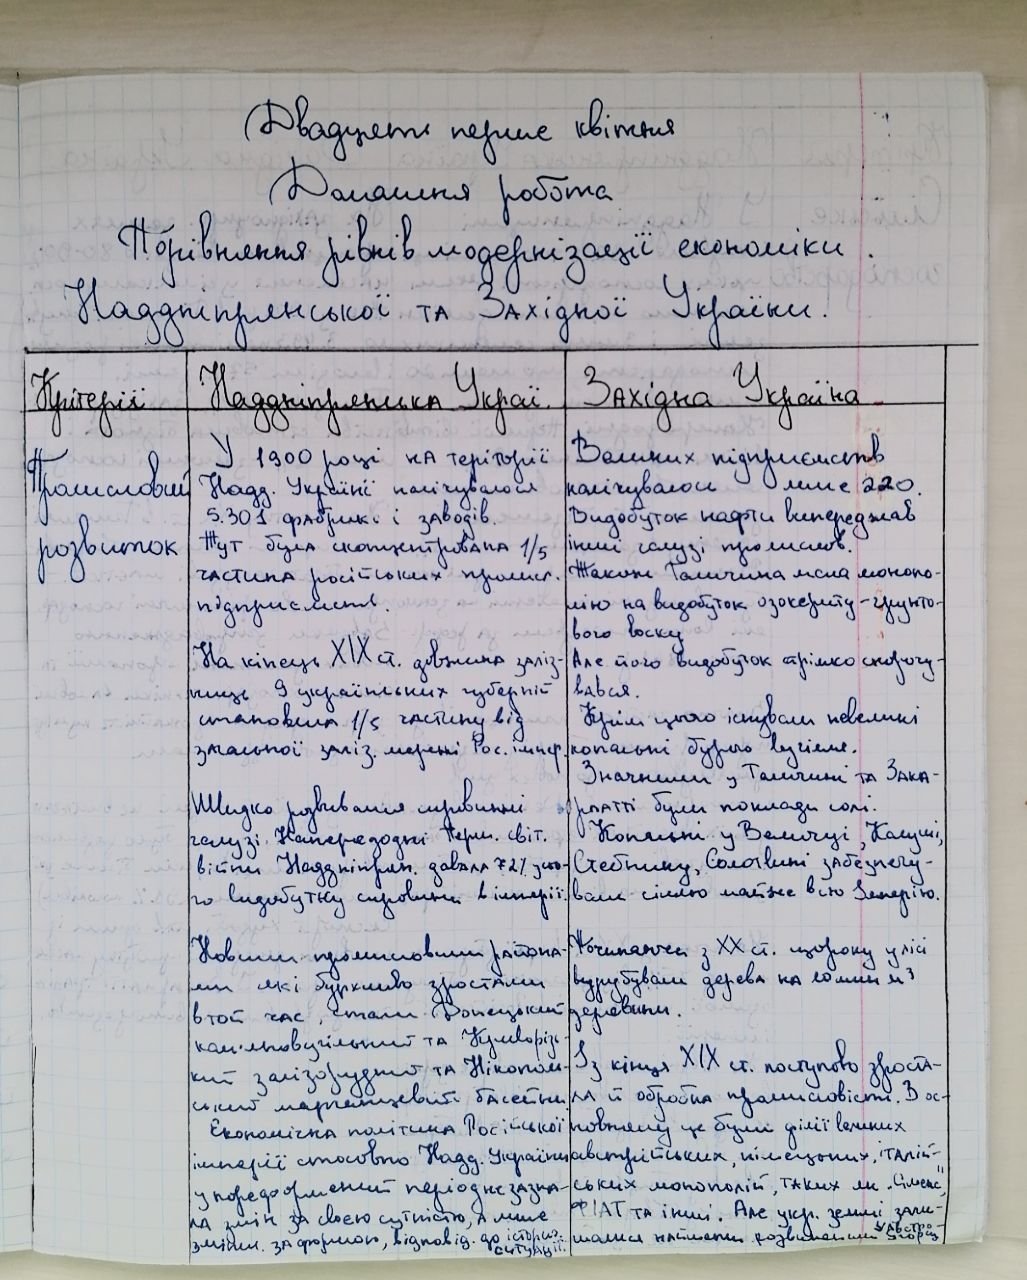 Двадцяте перше квітня
Домашня робота
Порівняння рівнів модернізації економіки
Наддніпрянської та Західної України.
Критерії
Наддніпрянська Украї.
Західна Україна
Промисловий
розвиток
У 1900 році на території
Надд. Україні налічувалося
5.301 фабрик і заводів.
Тут була сконцентрована 1/5
частина російських промисл.
підприємств.
На кінець XIX ст. довжина заліз-
ниць 9 українських губерній
становила 1/5 частину від
загальної заліз. мережі Рос. імпер.
Швидко розвивалися сировинні
галузі. Напередодні Перш. світ.
війни Наддніпрян. давала 72% усьо-
го видобутку сировини в імперії.
Новими промисловими района-
ми які бурхливо зростали
в той час, стали Донецький
кам'яновугільний та Криворізь-
кий залізорудний та Нікополь-
ський марганцевий басейни.
Економічна політика Російської
імперії стосовно Надд. України
у пореформений період не зазна-
ла змін за своєю сутністю, а лише
змін. за формою, відповід. до історич.
ситуації.
Великих підприємств
налічувалося лише 220.
Видобуток нафти випереджав
інші галузі промислов.
Також Галичина мала монопо-
лію на видобуток озокериту-ґрунто-
вого воску
Але його видобуток стрімко скорочу-
вався.
Крім цього існували невеликі
копальні бурого вугілля.
Значними у Галичині та Зака-
рпатті були поклади солі.
Копальні у Величці, Калуші,
Стебнику, Солотвині забезпечу-
вали сіллю майже всю Імперію.
Починаючи з XX ст. щороку у лісі
вирубували дерева на млн м³
деревини.
Із кінця XIX ст. поступово зроста-
ла й обробна промисловість. В ос-
новному це були філії великих
австрійських, німецьких, італій-
ських монополій, таких як "Сіменс",
ФІАТ та інші. Але укр. землі зали-
шалися найменш розвиненими у Австро-
Угорщ.